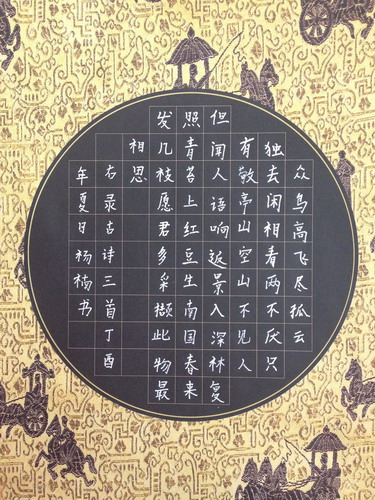 众鸟高飞尽孤云
独去闲相看两不厌只
有敬亭山空山不见人
但闻人语响返景入深林复
照青苔上红豆生南国春来
发几枝愿君多采撷此物最
相思
右录古诗三首丁酉
年夏日杨楠书